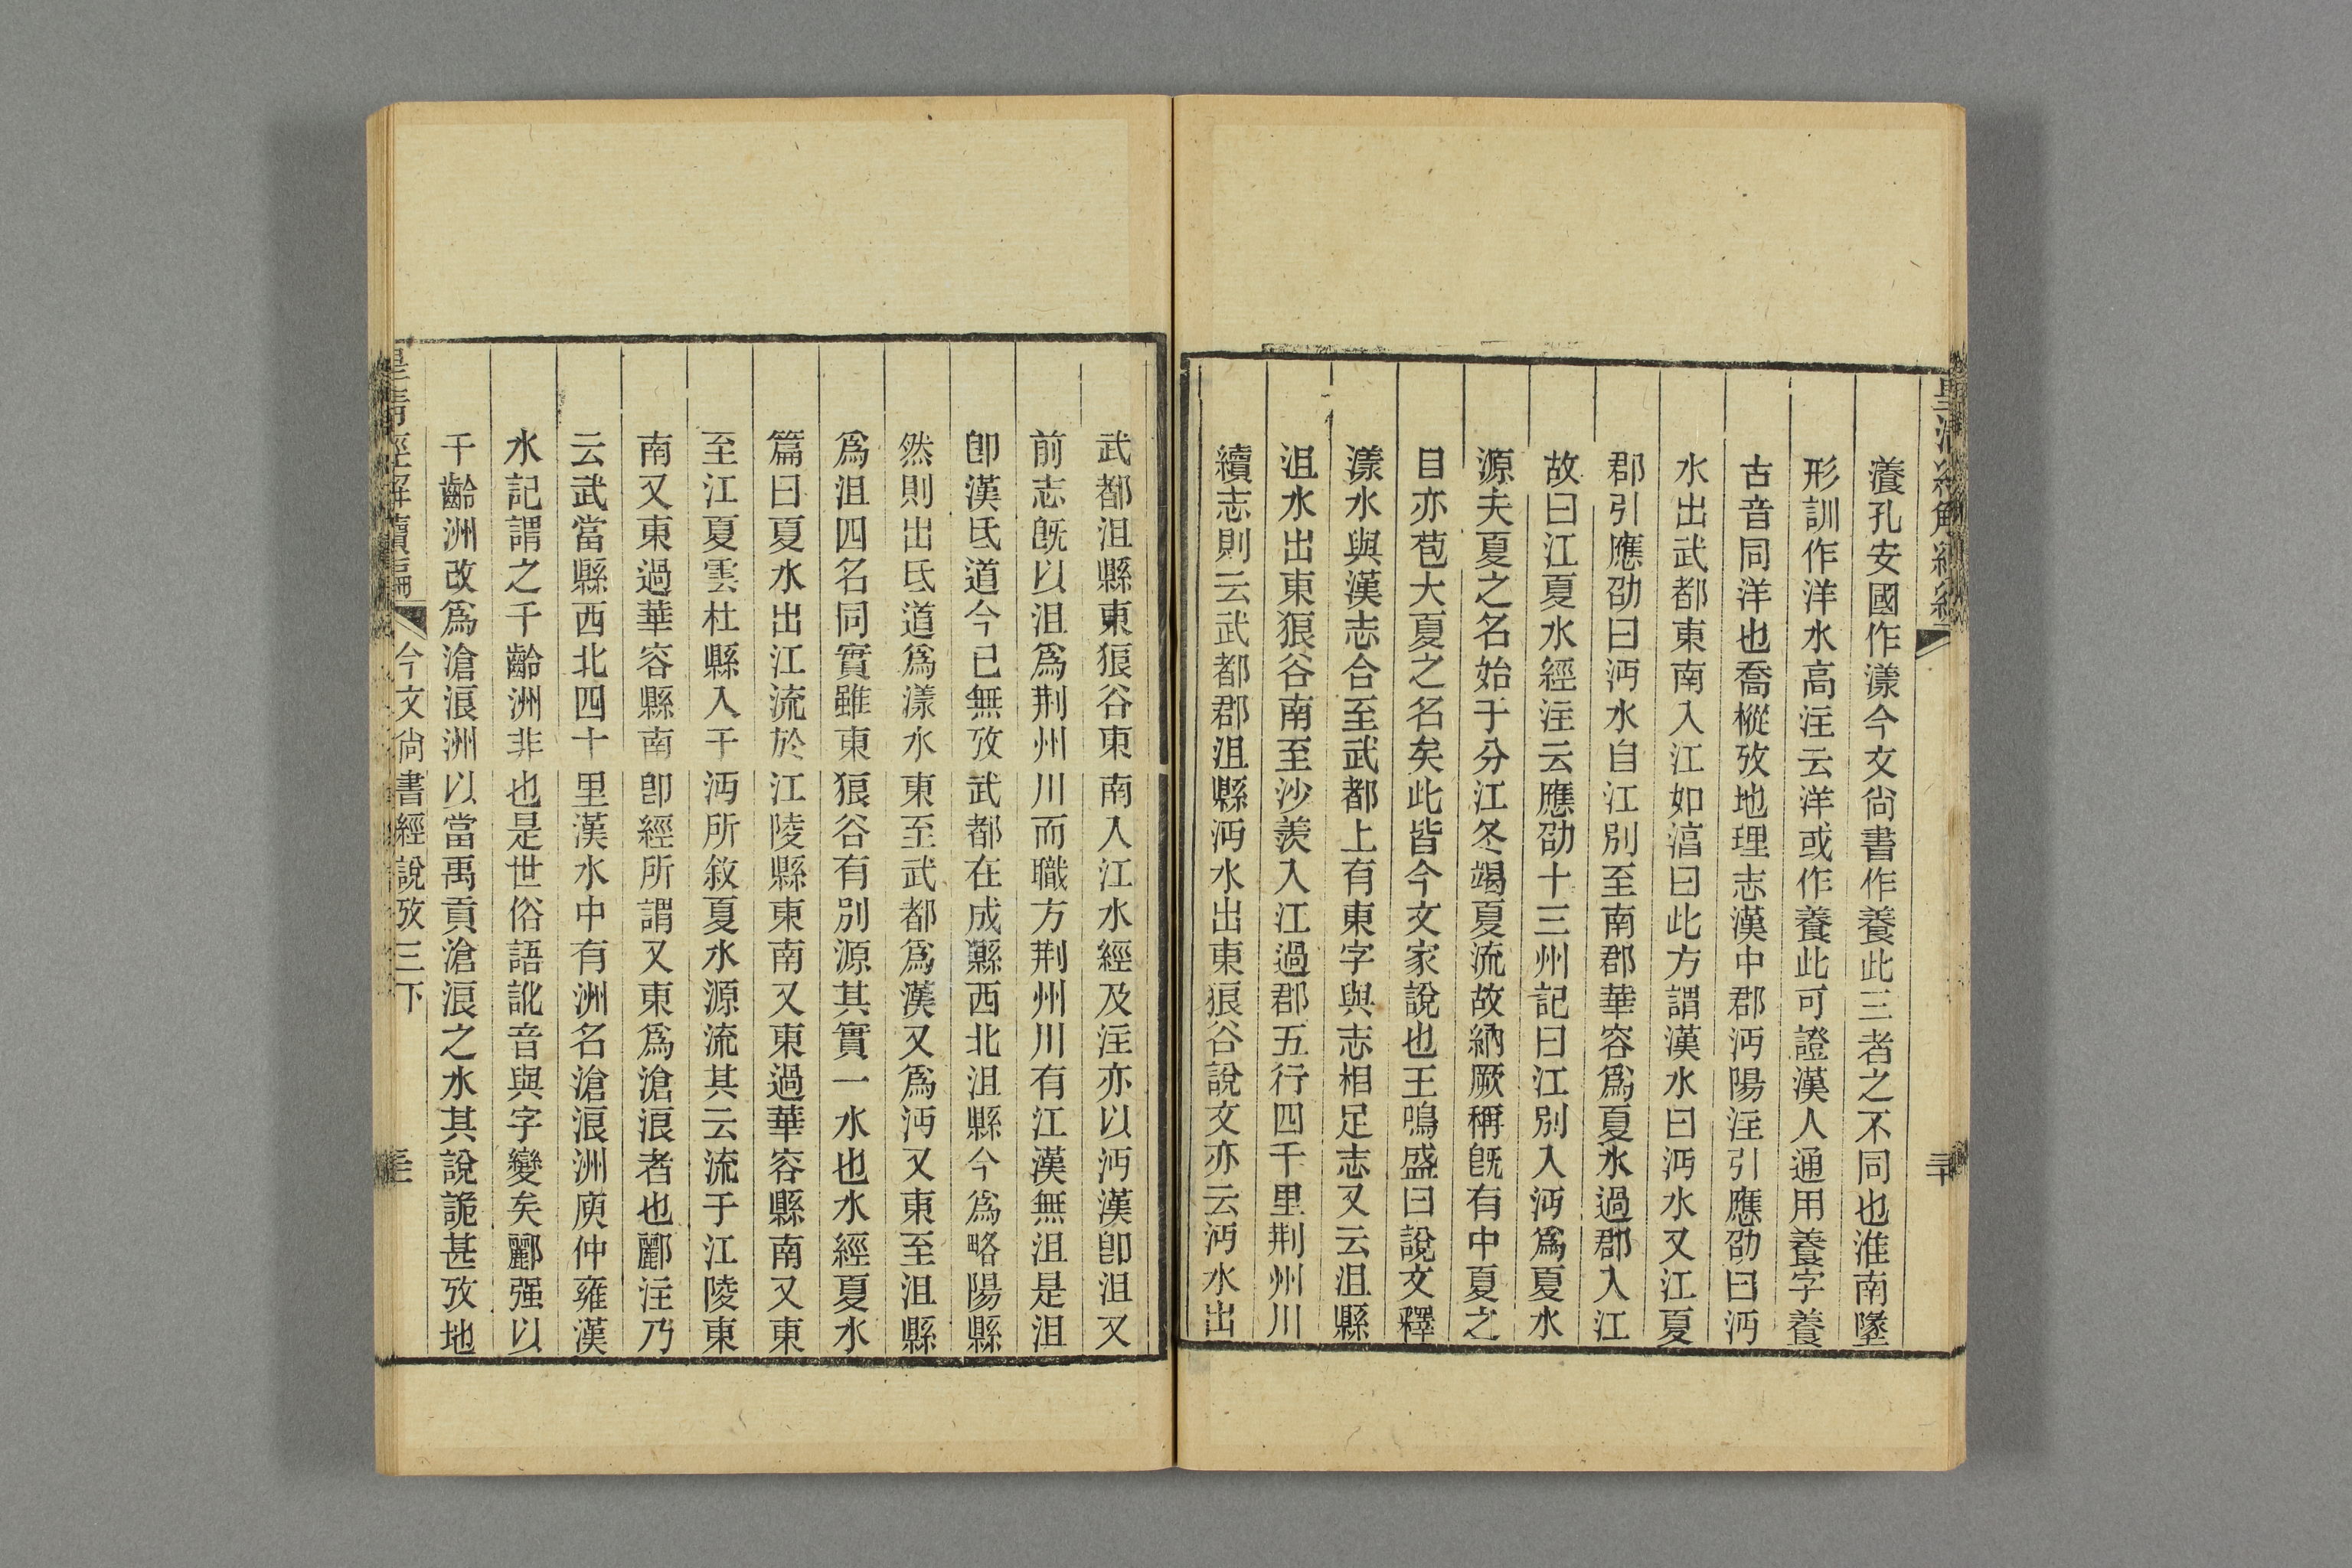 瀁孔安國作漾今文尙書作養此三者之不同也淮南墬
形訓作洋水高注云洋或作養此可證漢人通用養字養
古音同洋也喬樅攷地理志漢中郡沔陽注引應劭曰沔
水出武都東南入江如淳曰此方謂漢水曰沔水又江夏
郡引應劭曰沔水自江別至南郡華容爲夏水過郡入江
故曰江夏水經注云應劭十三州記曰江別入沔爲夏水
源夫夏之名始于分江冬竭夏流故納厥稱旣有中夏之
目亦苞大夏之名矣此皆今文家說也王鳴盛曰說文釋
漾水與漢志合至武都上有東字與志相足志又云沮縣
沮水出東狼谷南至沙羨入江過郡五行四千里荆州川
續志則云武都郡沮縣沔水出東狼谷說文亦云沔水出
武都沮縣東狼谷東南入江水經及注亦以沔漢卽沮又
前志旣以沮爲荆州川而職方荆州川有江漢無沮是沮
卽漢氐道今已無攷武都在成縣西北沮縣今爲略陽縣
然則出氐道爲漾水東至武都爲漢又爲沔又東至沮縣
爲沮四名同實雖東狼谷有別源其實一水也水經夏水
篇曰夏水出江流於江陵縣東南又東過華容縣南又東
至江夏雲杜縣入于沔所敘夏水源流其云流于江陵東
南又東過華容縣南卽經所謂又東爲滄浪者也酈注乃
云武當縣西北四十里漢水中有洲名滄浪洲庾仲雍漢
水記謂之千齡洲非也是世俗語訛音與字變矣酈强以
千齡洲改爲滄浪洲以當禹貢滄浪之水其說詭甚攷地
皇清經解續編
今文尙書經說攷三下